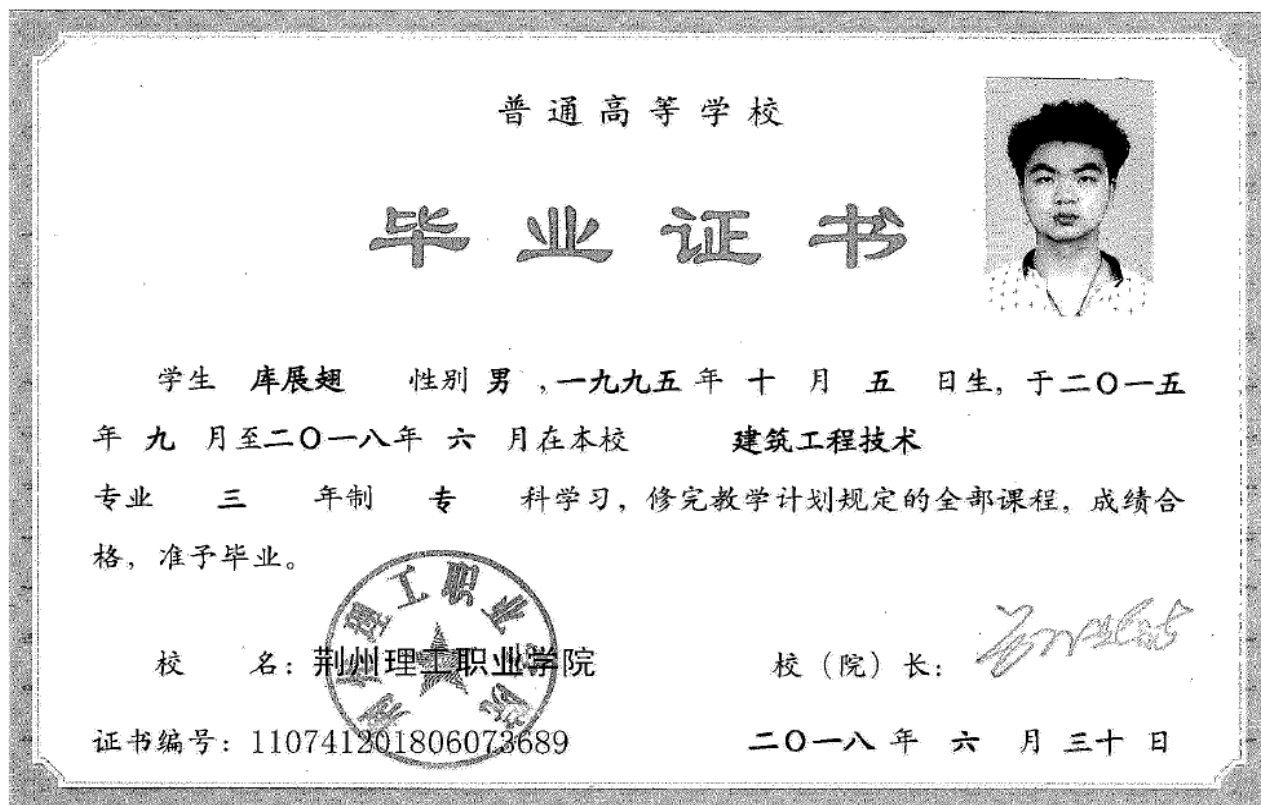 普通高等学校
毕业证书
学生 库展翅 性别 男 ,一九九五 年 十 月 五 日生, 于二〇一五
年 九 月至二〇一八年 六 月在本校 建筑工程技术
专业 三 年制 专 科学习, 修完教学计划规定的全部课程, 成绩合
格, 准予毕业。
荆州理工职业学院
校 名: 荆州理工职业学院 校（院）长:
证书编号: 110741201806073689 二〇一八 年 六 月 三十 日